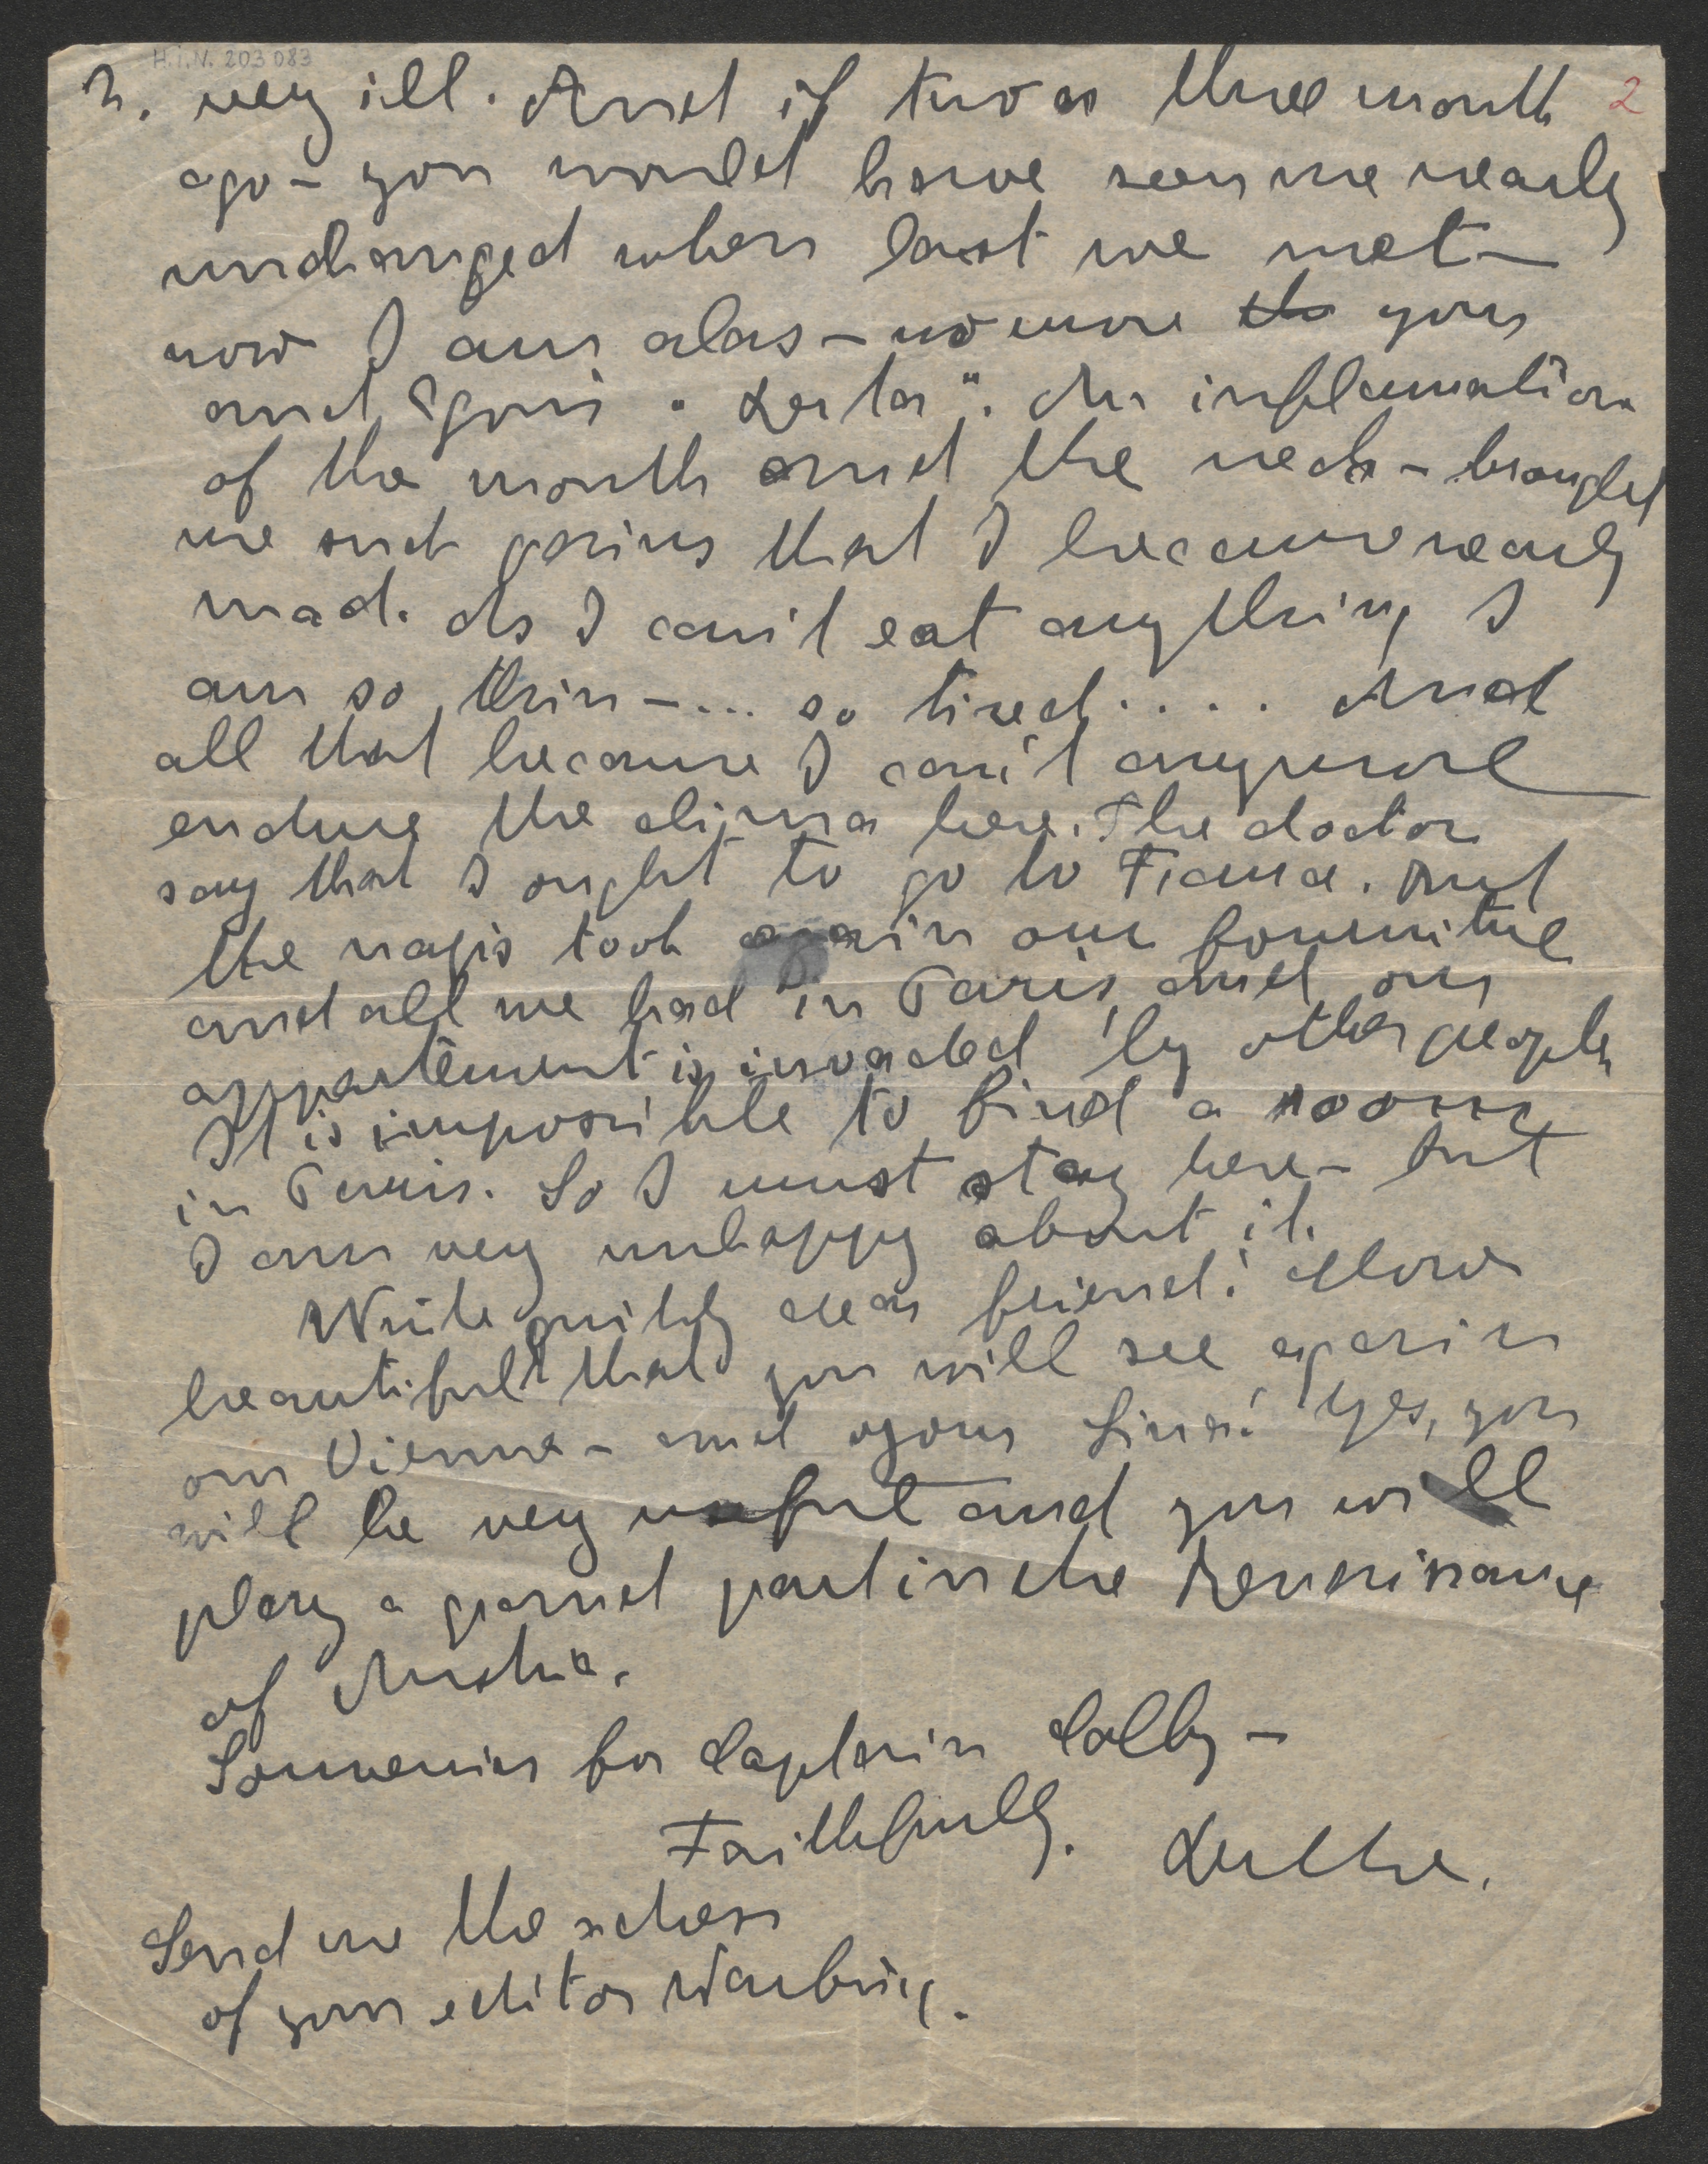 H.I.N. 203083
2
2. very ill. And if two or three month
ago – you would have seen me nearly
unchanged when last we met –
now I am alas – no more the your
and "Your". An inflammation
of the mouth and the neck – brought
me such pains that I became nearly
mad. As I can't eat anything I
am so thin – ... so tired .... And
all that because I can't anymore
endure the clima here. The doctor
say that I ought to go to France. But
the nazis took again our fourniture
and all we had in Paris, and our
appartement is invaded by other people
It is impossible to find a room
in Paris. So I must stay here – but
I am very unhappy about it.
Write quikly dear friend! How
beautiful that you will see again
our Vienna – and your Lina! Yes, you
will be very useful and you will
play a grand part in the Renaissance
of Austria.
Souvenirs for Captain Colby –
Faithfully. Lerthe.
Send me the adress
of your editor Warburg.